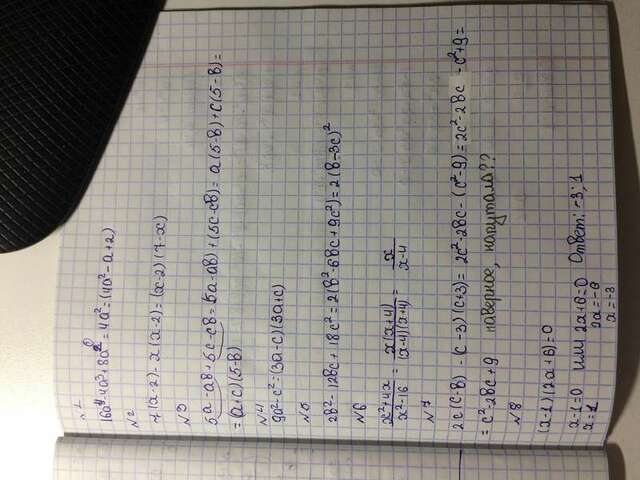 N1
16a⁴-4a³+8a² = 4a² = (4a²-a+2)
N2
7(x-2)-x(x-2)=(x-2)(7-x)
N3
5a-aв+5c-cв=(5a-aв)+(5c-cв)=a(5-в)+c(5-в)=
=(a+c)(5-в)
N4
9a²-c²=(3a-c)(3a+c)
N5
2в²-12вc+18c²=2(в²-6вc+9c²)=2(в-3c)²
N6
x²+4x/x²-16 = x(x+4)/(x-4)(x+4) = x/x-4
N7
2c(c-в)-(c-3)(c+3)=2c²-2вc-(c²-9)=2c²-2вc-c²+9=
=c²-2вc+9 наверное, напутала??
N8
(x-1)(2x+6)=0
x-1=0 или 2x+6=0 Ответ: -3; 1
x=1 2x=-6
x=-3